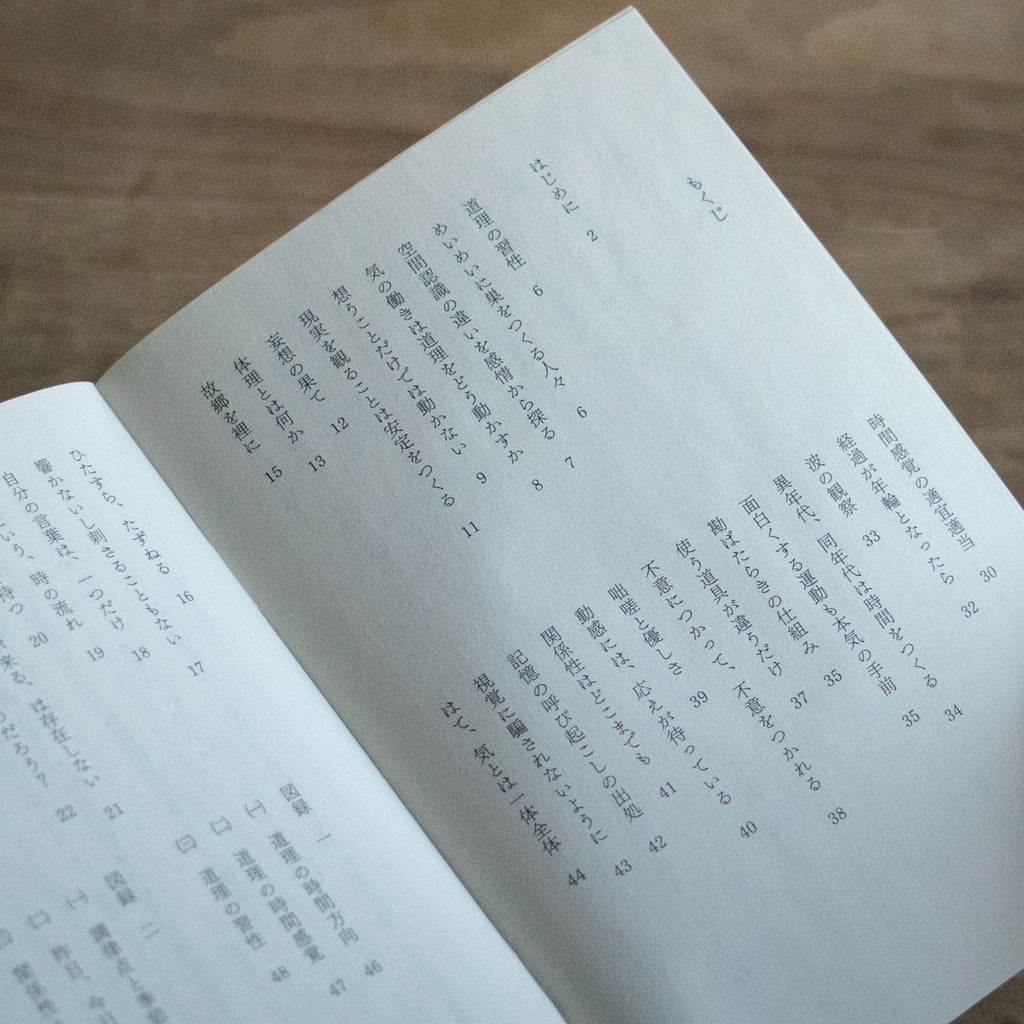 もくじ
はじめに 2
道理の習性 6
めいめいに巣をつくる人々 6
空間認識の違いを感情から探る 7
気の働きは道理をどう動かすか 8
想うことだけでは動かない 9
現実を観ることは安定をつくる 11
妄想の果て 12
体理とは何か 13
故郷を裡に 15
時間感覚の適宜適当 30
経過が年輪となったら 32
波の観察 33
異年代、同年代は時間をつくる 34
面白くする運動も本気の手前 35
勘ばたらきの仕組み 35
使う道具が違うだけ 37
不意につかって、不意をつかれる 38
咄嗟と優しさ 39
動感には、応えが待っている 40
関係性はどこまでも 41
記憶の呼び起こしの出処 42
視覚に騙されないように 43
はて、気とは一体全体 44
ひたすら、たずねる 16
響かないし刺さることもない 17
自分の言葉は、一つだけ 18
いう、時の流れ 19
持つ 20
来る、は存在しない 21
だろう? 22
図録 一
㈠ 道理の時間方向 46
㈡ 道理の時間感覚 47
㈢ 道理の習性 48
図録 二
㈠ 調律点と季節
㈡ 昨日、今日
関係性